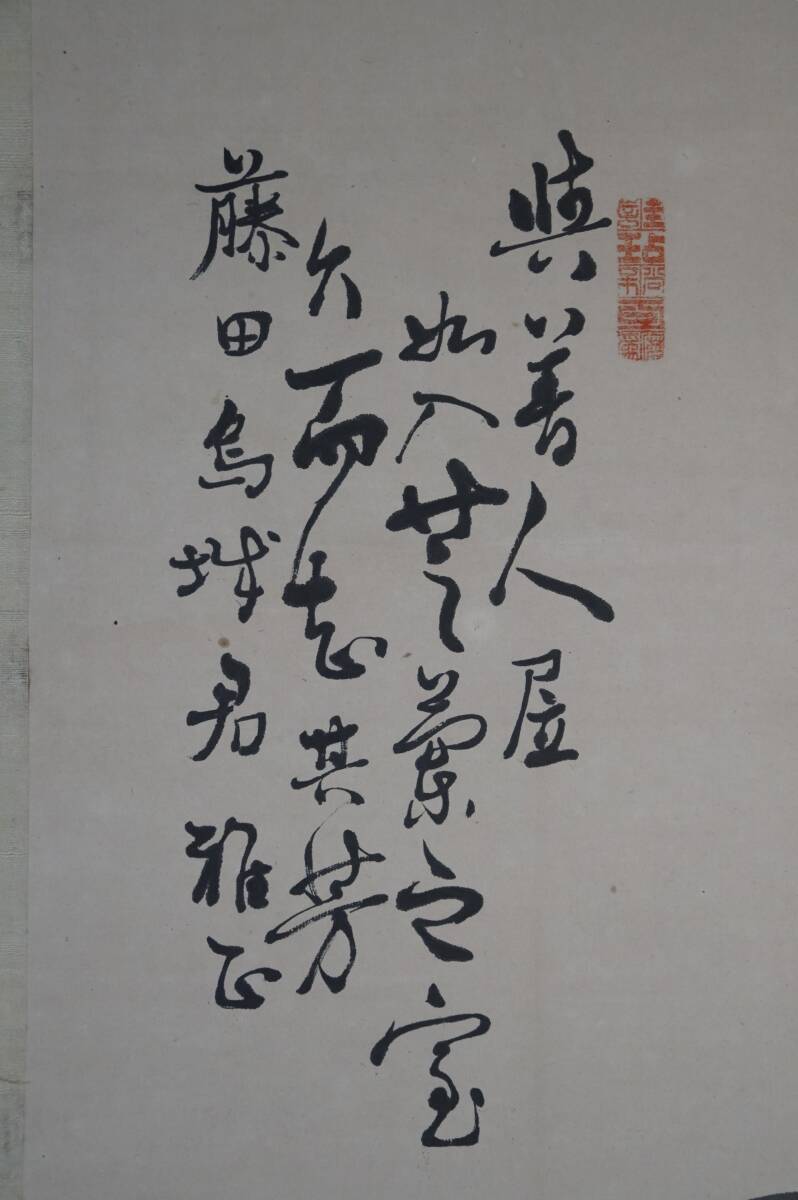 與善人居
如入芝蘭之室
久而忘其芳
藤田烏城君雅正